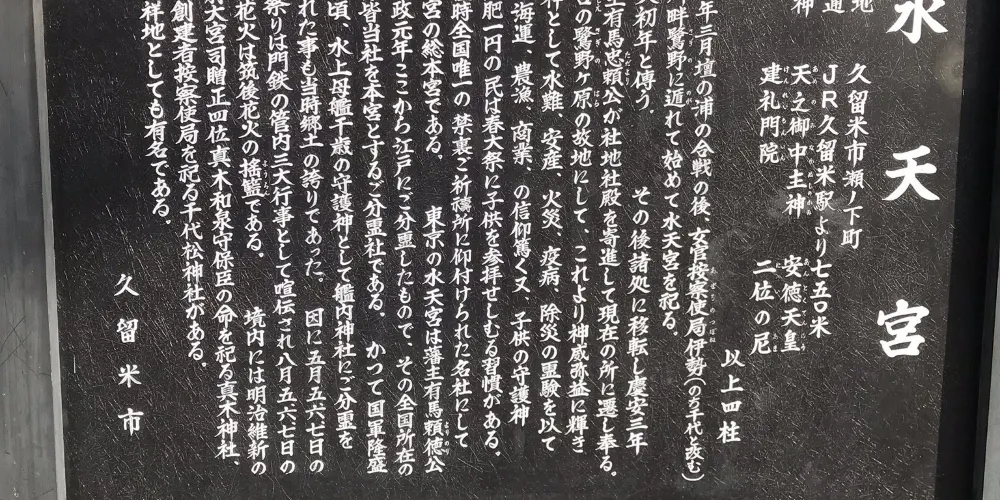 水天宮
地 久留米市瀬ノ下町
通 JR久留米駅より七五〇米
神 天之御中主神 安徳天皇
建礼門院 二位の尼
以上四柱
年三月壇の浦の合戦の後、女官按察使局伊勢(のち千代と改む)
畔鷺野に遁れて始めて水天宮を祀る。
初年と傳う。 その後諸処に移転し慶安三年
主有馬忠頼公が社地社殿を寄進して現在の所に遷し奉る。
の鷺野ヶ原の故地にして、これより神威弥益に輝き
神として水難、安産、火災、疫病、除災の霊験を以て
海運、農漁、商業、の信仰篤く又、子供の守護神
肥一円の民は春大祭に子供を参拝せしむる習慣がある。
時全国唯一の禁裏ご祈禱所に仰付けられた名社にして
宮の総本宮である。 東京の水天宮は藩主有馬頼徳公
政元年ここから江戸にご分霊したもので、その全国所在の
皆当社を本宮とするご分霊社である。 かつて国軍隆盛
頃、水上母艦千歳の守護神として艦内神社にご分霊を
れた事も当時郷土の誇りであった。 因に五月五六七日の
祭りは門鉄の管内三大行事として喧伝され八月五六七日の
花火は筑後花火の揺籃である。 境内には明治維新の
大宮司贈正四位真木和泉守保臣の命を祀る真木神社、
創建者按察使局を祀る千代松神社がある。
祥地としても有名である。
久留米市